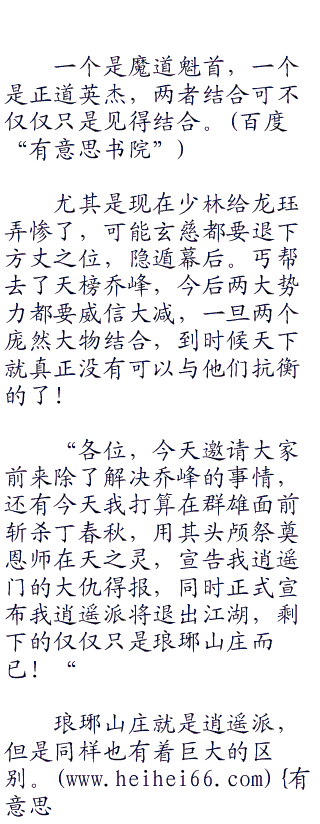 一个是魔道魁首，一个
是正道英杰，两者结合可不
仅仅只是见得结合。(百度
“有意思书院”)
尤其是现在少林给龙珏
弄惨了，可能玄慈都要退下
方丈之位，隐遁幕后。丐帮
去了天榜乔峰，今后两大势
力都要威信大减，一旦两个
庞然大物结合，到时候天下
就真正没有可以与他们抗衡
的了！
“各位，今天邀请大家
前来除了解决乔峰的事情，
还有今天我打算在群雄面前
斩杀丁春秋，用其头颅祭奠
恩师在天之灵，宣告我逍遥
门的大仇得报，同时正式宣
布我逍遥派将退出江湖，剩
下的仅仅只是琅琊山庄而
已！“
琅琊山庄就是逍遥派，
但是同样也有着巨大的区
别。(www.heihei66.com){有
意思